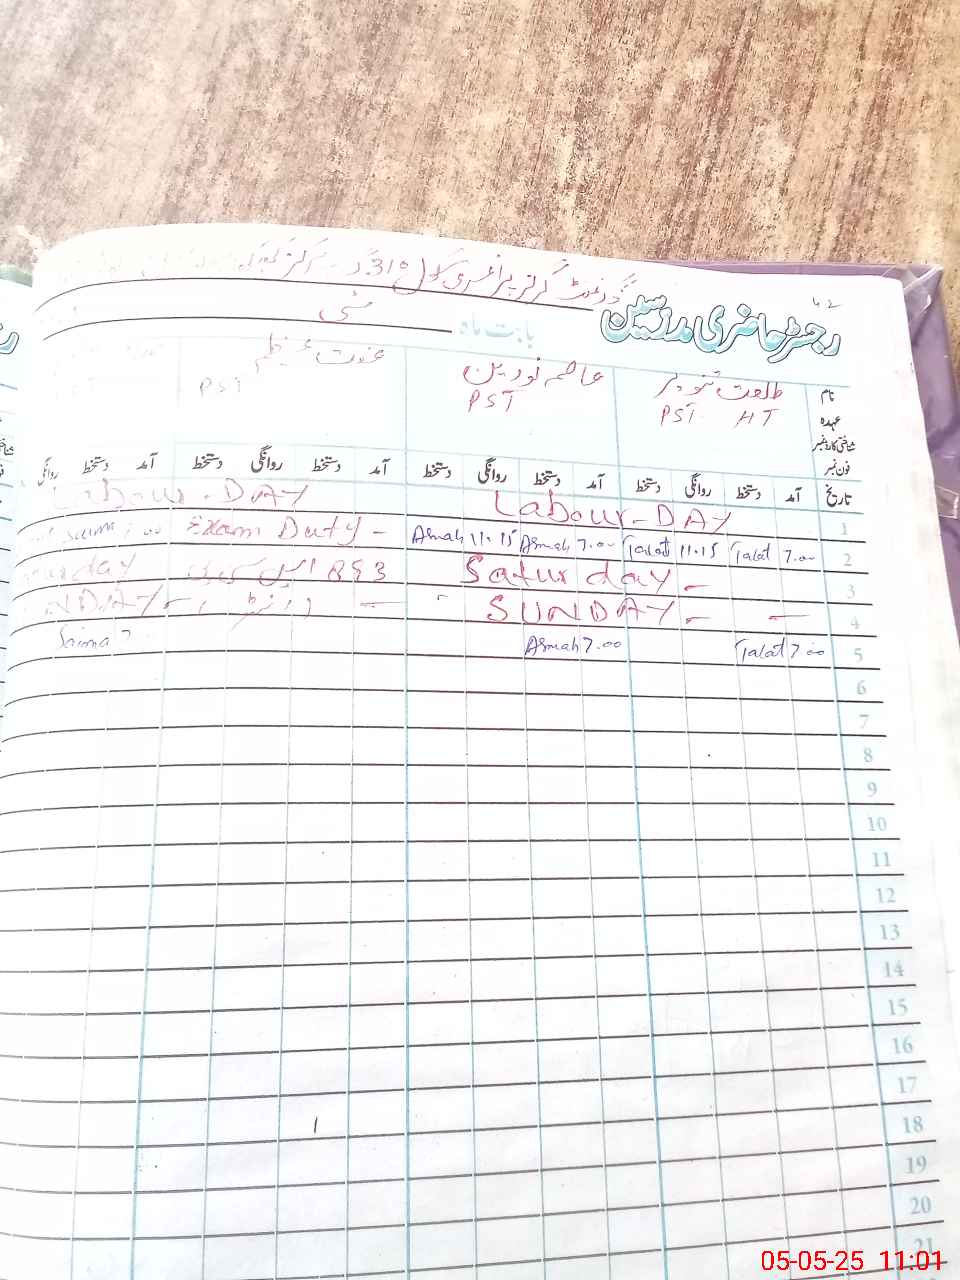 گورنمنٹ گرلز پرائمری سکول 319
رجسٹر حاضری مدرسین
بابت ماہ مئی
نام طلعت تنویر عاصمہ نورین
عہدہ PST HT PST PST
شناختی کارڈ نمبر
فون نمبر
تاریخ آمد دستخط روانگی دستخط آمد دستخط روانگی دستخط آمد دستخط روانگی دستخط آمد دستخط روانگی
1 Labour-DAY Labour-DAY
2 7.00 Talat 11.15 Talat 7.00 Asmah 11.15 Asmah Exam Duty - Saima
3 Saturday -
4 SUNDAY - -
5 7.00 Talat 7.00 Asmah 7 Saima
6
7
8
9
10
11
12
13
14
15
16
17
18
19
20
21
05-05-25 11:01